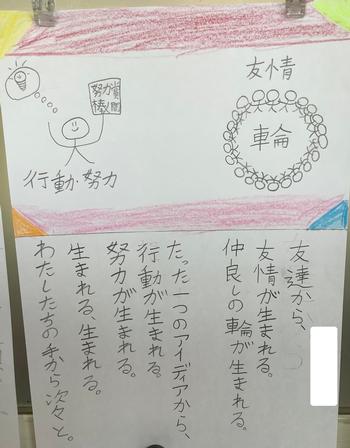 友情
輪
努力賞
棒人間
行動・努力
友達から、
友情が生まれる。
仲良しの輪が生まれる。
たった一つのアイディアから、
行動が生まれる。
努力が生まれる。
生まれる、生まれる。
わたしたちの手から次々と。